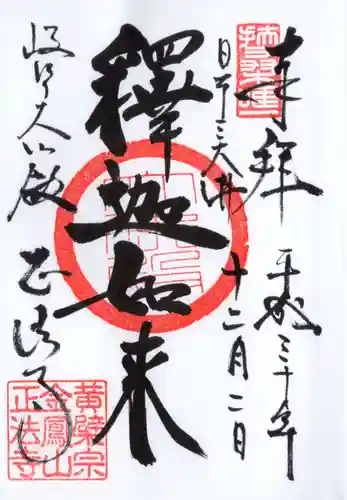 奉拝
平成三十年
日本三大佛
十二月二日
釋迦如来
岐阜大仏殿
正法寺
黄檗宗
金鳳山
正法寺